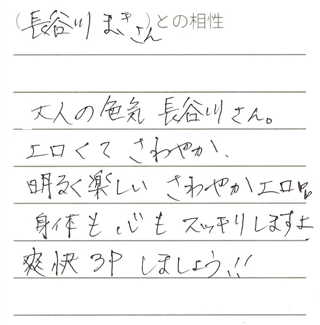 (長谷川まきさん)との相性
大人の色気 長谷川さん。
エロくて さわやか、
明るく楽しい さわやかエロ!!
身体も心も スッキリしますよ
爽快3P しましょう!!